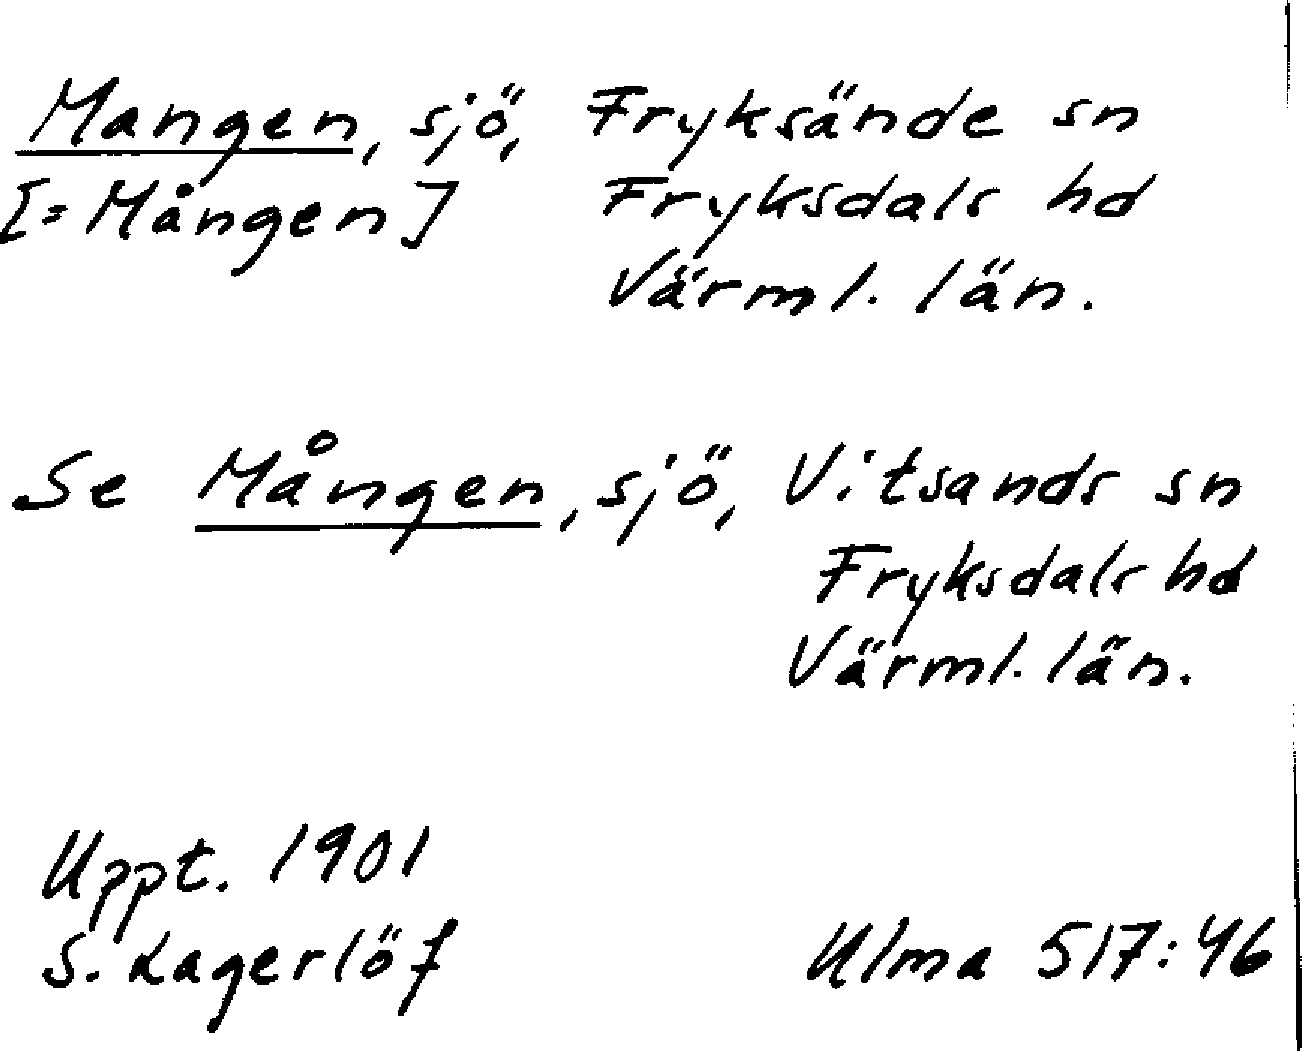 Mangen, sjö, Fryksände sn
[= Mången] Fryksdals hd
Värml. län.
Se Mången, sjö, Vitsands sn
Fryksdals hd
Värml. län.
Uppt. 1901
S. Lagerlöf Ulma 517:46